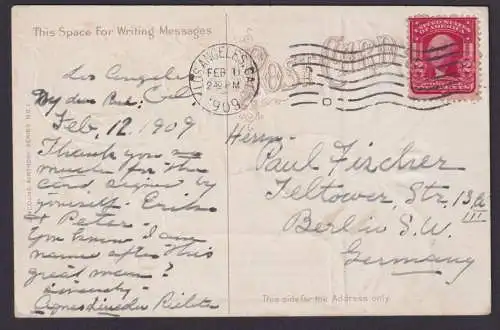 This Space For Writing Messages
Los Angeles
Cal
Feb. 12. 1909
Thank you so
much for the
card, signed by
yourself Erik
& Peter
You know I am
named after this
great man?
Sincerely
LOS ANGELES, CAL.
FEB 11
2 30 PM
1909
POST CARD
UNITED STATES OF AMERICA
2 2
Herrn
Paul Fischer
Teltower, Str. 13, a
III
Berlin S.W.
Germany
This side for the Address only.